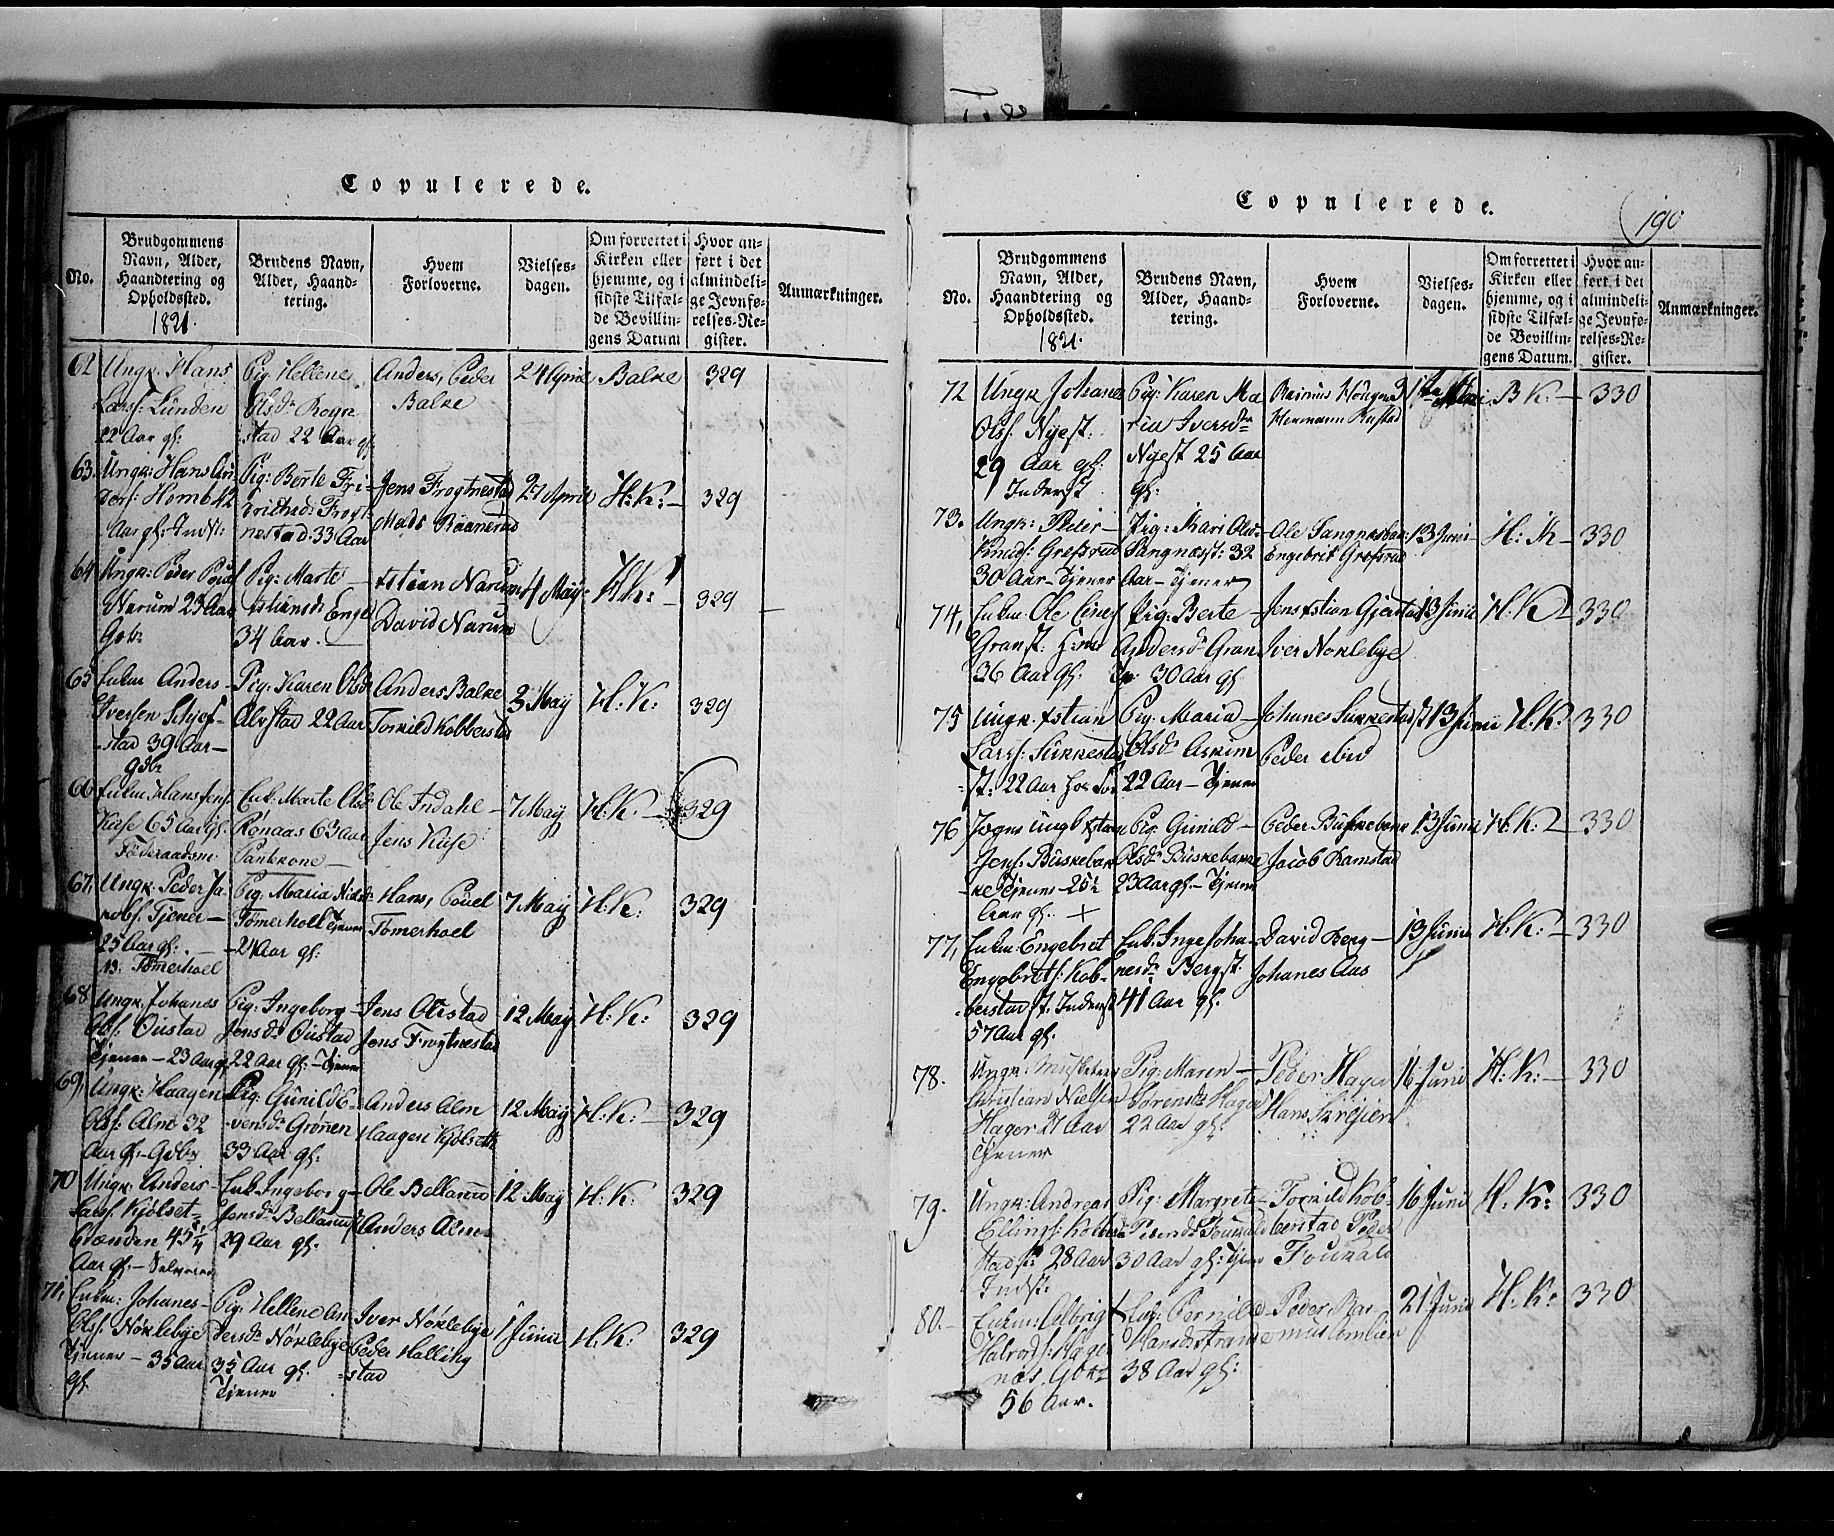 Copulerede.
No.
Brudgommens
Navn, Alder,
Haandtering og
Opholdssted.
1821.
Brudens Navn,
Alder, Haand-
tering.
Hvem
Forloverne.
Vielses-
dagen.
Om forrettet i
Kirken eller
hjemme, og i
sidste Tilfæl-
de Bevillin-
gens Datum
Hvor an-
ført i det
almindeli-
ge Jevnfø-
relses-Re-
gister.
Anmærkninger.
62 Ungk: Hans
Larss: Lunden
22 Aar gl:
Pig: Hellene
Olsdr Rogn
stad 22 Aar gl
Anders, Peder
Balke
24 April
Balke
329
63. Ungk: Hans An
ders: Homb 42
Aar gl: Indst:
Pig: Berte Fri-
drichsd: Frogt-
nestad: 33 Aar
Jens Frogtnestad
Mads Raanerud
27 April
H: K:
329
64 Ungk: Peder Poul
Narum 23 Aar
Gbr
Pig: Marte
xstiansdr Enge
34 Aar.
xstian Narum
David Narum
4 May
H K:
329
65 Enkm Anders
Iversen Schjef-
stad 39 Aar
Gdbr
Pig: Karen Olsdr
Alvstad 22 Aar
Anders Balke
Torkild Kobberstad
3 May
H: K:
329
66 Enkm Hans Jens
Kiise 65 Aar gl.
Föderaadsm:
Enk: Marte Olsdr
Rönaas 63 Aar
Ole Indahl
Jens Kiise
7 May
H: K.
329
67. Ungk. Peder Ja-
kobs. Tjener
25 Aar gl:
Tömerhoel
Pig: Maria Nielsdr
Tömerholl Tjener
21 Aar gl:
Hans, Povel
Tömerhoel
7 May
H: K:
329
68 Ungk. Johanes
Ols. Öustad
Tjener - 23 Aar gl
Pig: Ingeborg
Jensdr Öustad
22 Aar gl: - Tjener
Jens Öustad
Jens Frogtnestad
12 May
H: K:
329
69, Ungk: Haagen
Ols: Alm 32
Aar gl - Gdbr
Pig: Gunild E-
vensdr Grönen
33 Aar gl:
Anders Alm
Haagen Kjölseth
12 May
H: K:
329
70 Ungk: Anders
Lars. Kjölset-
brænden 45 1/4
Aar gl.
Enk Ingeborg
Jensdr Bellerud
29 Aar gl:
Ole Bellerud
Anders Alm
12 May
H: K:
329
71, Enkm: Johanes
Ols. Nöklebye
Tjener - 35 Aar
gl.
Pig: Hellene An
dersdr Nöklebye
35 Aar gl.
Tjener
Iver Nöklebye
Peder Halling
stad
1 Juni
H: K:
329
Copulerede.
190
No.
Brudgommens
Navn, Alder,
Haandtering og
Opholdssted.
1821.
Brudens Navn,
Alder, Haand-
tering.
Hvem
Forloverne.
Vielses-
dagen.
Om forrettet i
Kirken eller
hjemme, og i
sidste Tilfæl-
de Bevillin-
gens Datum.
Hvor an-
ført i det
almindeli-
ge Jevnfø-
relses-Re-
gister.
Anmærkninger.
72 Ungk Johanes
Olss. Nyest:
29 Aar gl:
Inderst
Pig: Karen Ma
ria Iversdr
Nyest 25 Aar
gl:
Hermann Rustad
31 Mai
B K:
330
73. Ungk: Peder
Knuds: Gresrud
30 Aar - Tjener
Pig: Mari Olsd
Sangnæsst: 32
Aar - Tjener
Ole Sangnesbak
Engebrit Gresrud
13 Juni
H: K
330
74, Enkm Ole Einers
Granst.
36 Aar gl.
Pig: Berte
Andersdr Gran
30 Aar gl
Jens xstian Gjerstad
Iver Nöklebye
13 Junii
H. K
330
75 Ungk. xstian
Lars: Sukkestad
st: 22 Aar
Pig: Maria
Olsdr Askim
22 Aar - Tjener
Johanes Sukkestad
Peder ibid
13 Juni
H. K:
330
76, xstian
Jens: Büskebak
ke Tjener - 25 1/2
Aar gl. +
Pig: Gunild
Olsdr Büskebakke
23 Aar gl - Tjener
Peder Büskebak
Jacob Ramstad
13 Junii
H. K:
330
77, Enkm: Engebret
Engebrets: Kob-
berstad st. Inderst
57 Aar gl.
Enk: Inge Joha-
nesdr Bergst:
41 Aar gl:
David Berg
Johanes Aas
13 Juni
H. K:
330
78. Ungk:
Christian Nielsen
Hager 27 Aar
Tjener
Pig: Maren
Sörensdr Hager
22 Aar gl:
Peder Hager
16 Juni
H: K:
330
79. Ungk: Andreas
Ellings: Kobber
stadst: 28 Aar
Indst:
Pig: Margrete
Pedersdr Fouvald
30 Aar gl: Tjener
Torkild Kob-
berstad Peder
Fouvald
16 Juni
H. K:
330
80. Enkm: Albrigt
Halvors:
56 Aar.
Enk: Pernille
Hansdr
38 Aar gl:
Peder Ras
mus Amlien
21 Juni
H: K:
330